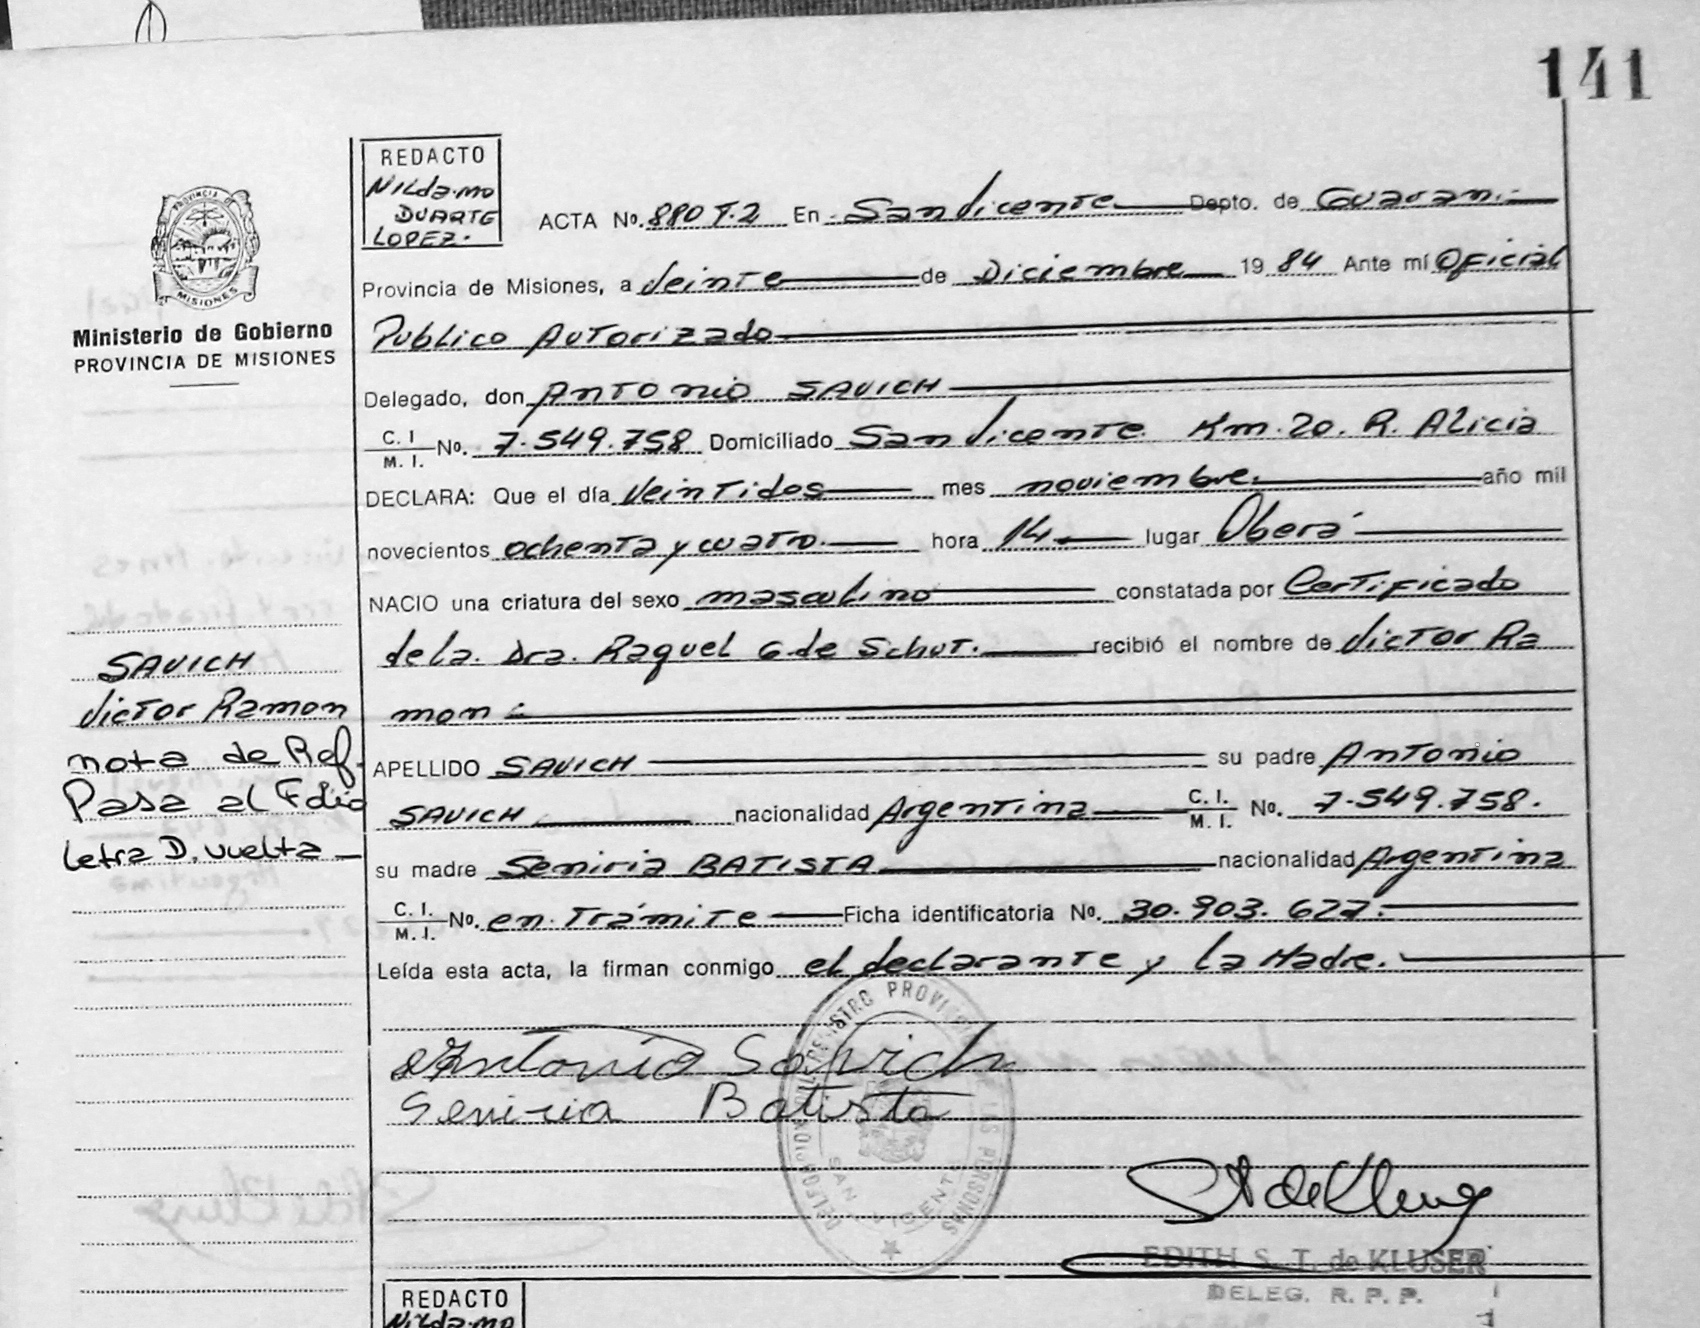 141
REDACTO
Nilda.mo
DUARTE
LOPEZ.
PROVINCIA DE
MISIONES
Ministerio de Gobierno
PROVINCIA DE MISIONES
ACTA No. 880 T.2 En San Vicente Depto. de Guaraní
Provincia de Misiones, a Veinte de Diciembre 1984 Ante mí Oficial
Publico Autorizado
Delegado, don Antonio SAVICH
C. I. / M. I. No. 7.549.758 Domiciliado San Vicente Km. 20. R. Alicia
DECLARA: Que el día Veintidos mes noviembre. año mil
novecientos ochenta y cuatro. hora 14 lugar Oberá
NACIO una criatura del sexo masculino constatada por Certificado
dela. Dra. Raquel G de Schut. recibió el nombre de Victor Ra
mon
APELLIDO SAVICH su padre Antonio
SAVICH nacionalidad Argentina C. I. / M. I. No. 7.549.758.
su madre Seniria BATISTA nacionalidad Argentina
C. I. / M. I. No. en Trámite Ficha identificatoria No. 30.903.627.
Leída esta acta, la firman conmigo el declarante y la Madre.
SAVICH
Victor Ramon
nota de Ref.
Pasa al Folio
letra D. vuelta
Antonio Savich
Seniria Batista
DELEGACION DEL REGISTRO PROVINCIAL DE LAS PERSONAS
SAN VICENTE
EDITH S. T. de KLUSER
DELEG. R. P. P.
REDACTO
Nilda.mo